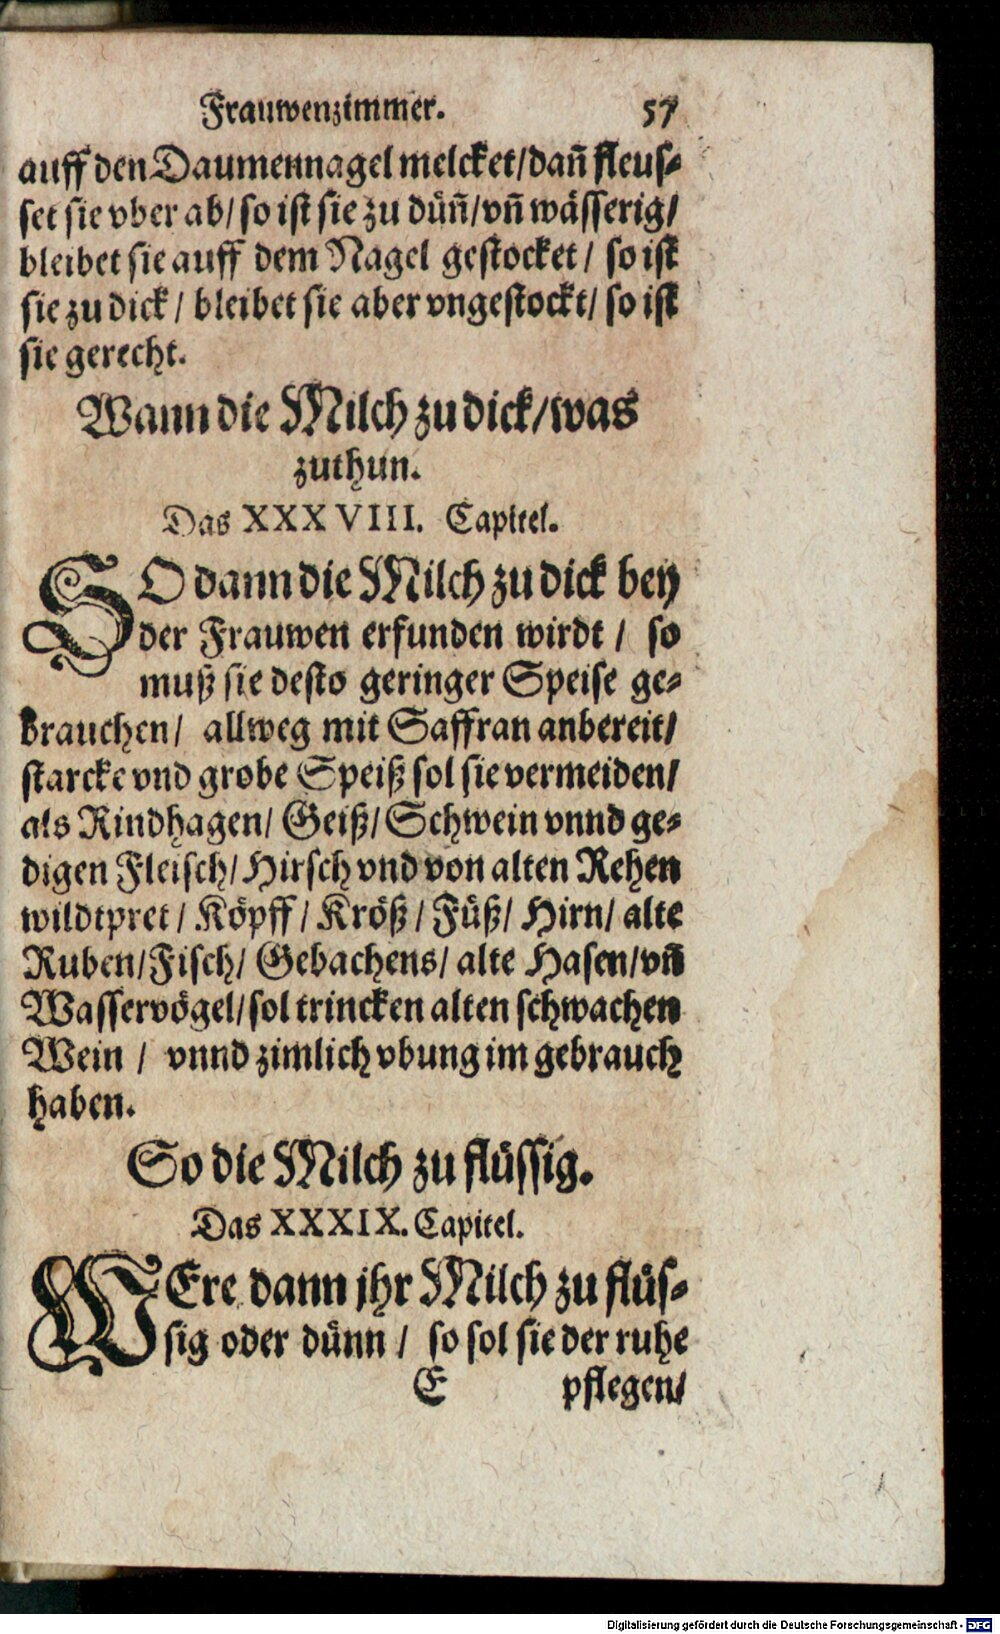 Frauwenzimmer. 57
auff den Daumennagel melcket/dañ fleus-
set sie vber ab/ so ist sie zu düñ/vñ wässerig/
bleibet sie auff dem Nagel gestocket/ so ist
sie zu dick/ bleibet sie aber vngestockt/ so ist
sie gerecht.
Wann die Milch zu dick/was
zuthun.
Das XXXVIII. Capitel.
SO dann die Milch zu dick bey
der Frauwen erfunden wirdt/ so
muß sie desto geringer Speise ge-
brauchen/ allweg mit Saffran anbereit/
starcke vnd grobe Speiß sol sie vermeiden/
als Rindhagen/ Geiß/ Schwein vnnd ge-
digen Fleisch/ Hirsch vnd von alten Rehen
wildtpret/ Köpff/ Kröß/ Füß/ Hirn/ alte
Ruben/Fisch/ Gebachens/ alte Hasen/vñ
Wasservögel/sol trincken alten schwachen
Wein/ vnnd zimlich vbung im gebrauch
haben.
So die Milch zu flüssig.
Das XXXIX. Capitel.
WEre dann jhr Milch zu flüs-
sig oder dünn/ so sol sie der ruhe
E pflegen/
Digitalisierung gefördert durch die Deutsche Forschungsgemeinschaft - DFG